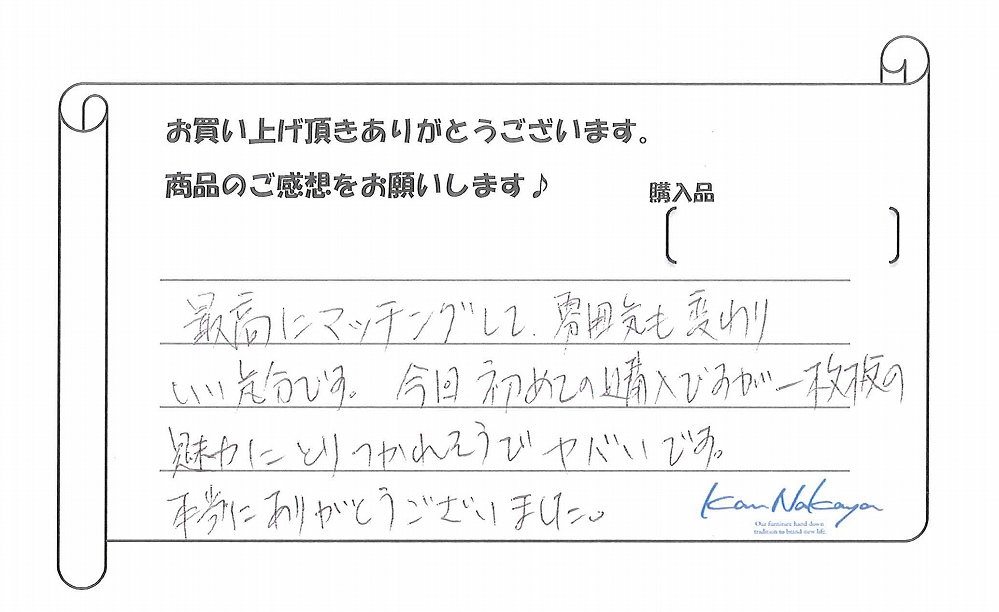 お買い上げ頂きありがとうございます。
商品のご感想をお願いします♪
購入品
最高にマッチングして、雰囲気も変わり
いい気分です。今回初めての購入ですが一枚板の
魅力にとりつかれそうでヤバいです。
本当にありがとうございました。
Kan Nakaya
Our furniture hand down
tradition to brand-new life.